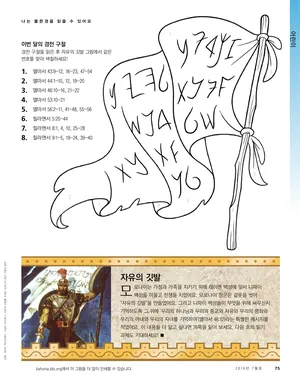 나는 몰몬경을 읽을 수 있어요
어린이
이번 달의 경전 구절
경전 구절을 읽은 후 자유의 깃발 그림에서 같은
번호를 찾아 색칠하세요!
1. 앨마서 43:9–12, 16–23, 47–54
2. 앨마서 44:1–10, 12, 19–20
3. 앨마서 46:10–16, 21–22
4. 앨마서 53:10–21
5. 앨마서 56:2–11, 41–48, 55–56
6. 힐라맨서 5:20–44
7. 힐라맨서 8:1, 4, 10, 25–28
8. 힐라맨서 9:1–5, 19–24, 39–40
자유의 깃발
모로나이는 가정과 가족을 지키기 위해 레이맨 백성에 맞서 니파이
백성을 이끌고 전쟁을 치렀어요. 모로나이 장군은 겉옷을 찢어
"자유의 깃발"을 만들었어요. 그리고 니파이 백성들이 무엇을 위해 싸우는지
기억하도록 그 위에 '우리의 하나님과 우리의 종교와 자유와 우리의 평화와
우리의 아내와 우리의 자녀를 기억하여'(앨마서 46:12)라는 특별한 메시지를
적었어요. 이 내용을 더 알고 싶다면 가족을 읽어 보세요. 다음 호의 읽기
과제도 기대하세요! ■
liahona.lds.org에서 이 그림을 더 많이 인쇄할 수 있습니다.
2016년 7월호 75